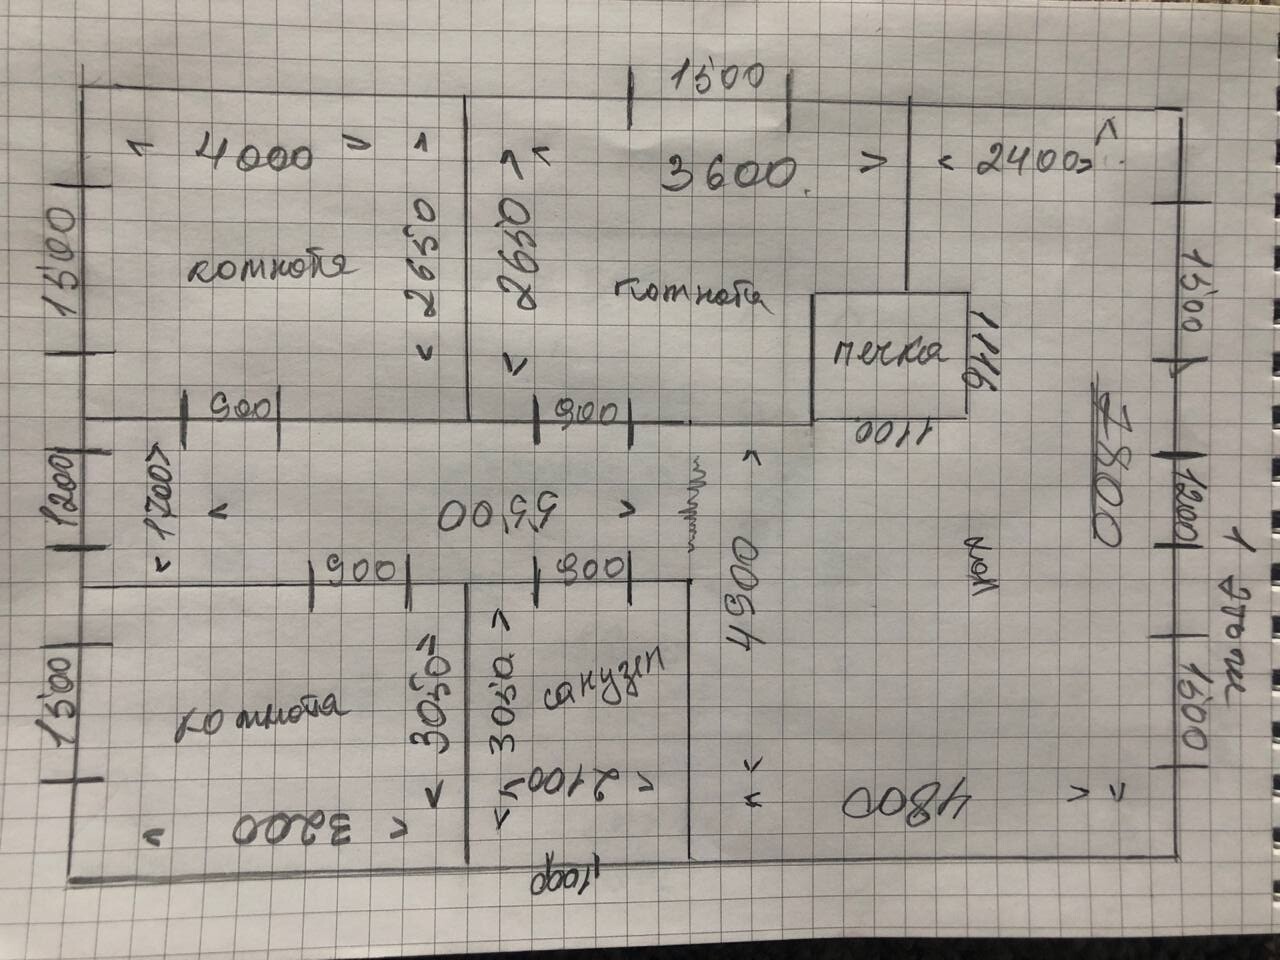 1500
4000
3600
2400
1500
2650
2650
комната
комната
1500
печка
1116
1100
900
900
7800
1200
1700
5500
1200
4900
зал
1 этаж
900
900
1500
3050
3050
санузел
комната
1500
2100
3200
4800
1000